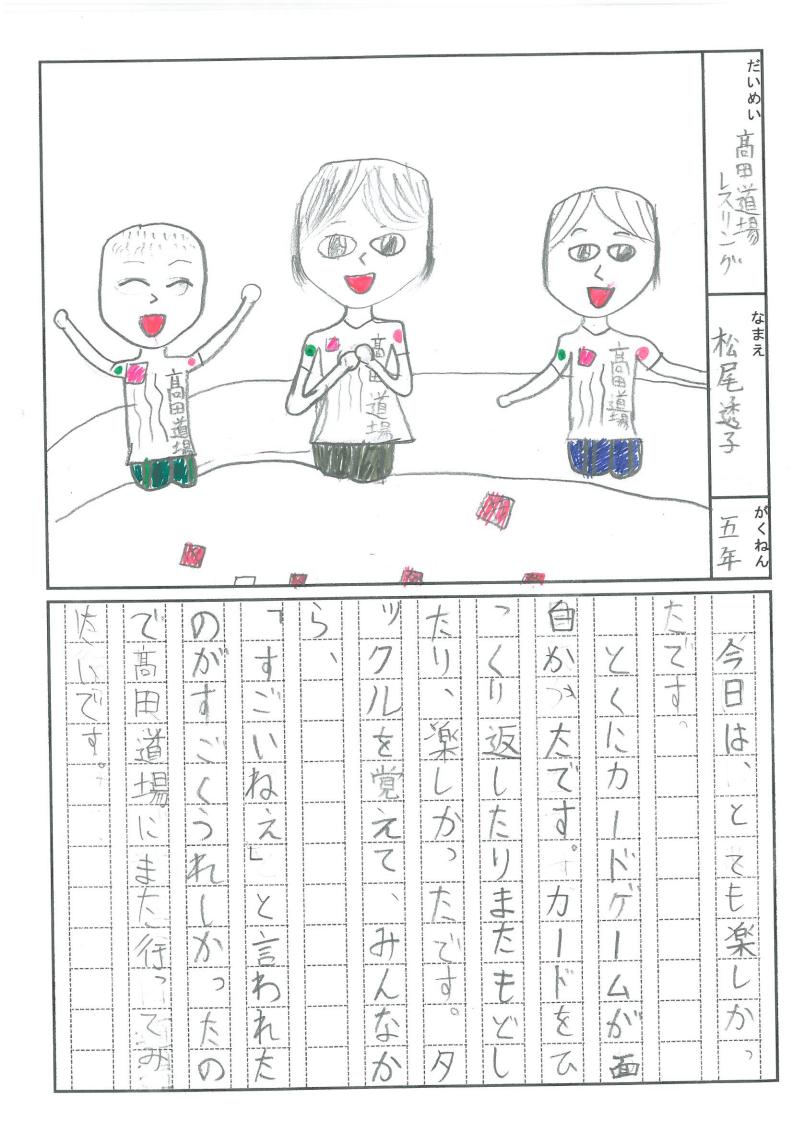 だいめい
髙田道場
レスリング
なまえ
松尾透子
がくねん
五年
髙田道場
髙田道場
髙田道場
今日は、とても楽しかっ
たです。
とくにカードゲームが面
自かったです。カードをひ
っくり返したりまたもどし
たり、楽しかったです。タ
ックルを覚えて、みんなか
ら、
「すごいねえ」と言われた
のがすごくうれしかったの
で髙田道場にまた行ってみ
たいです。